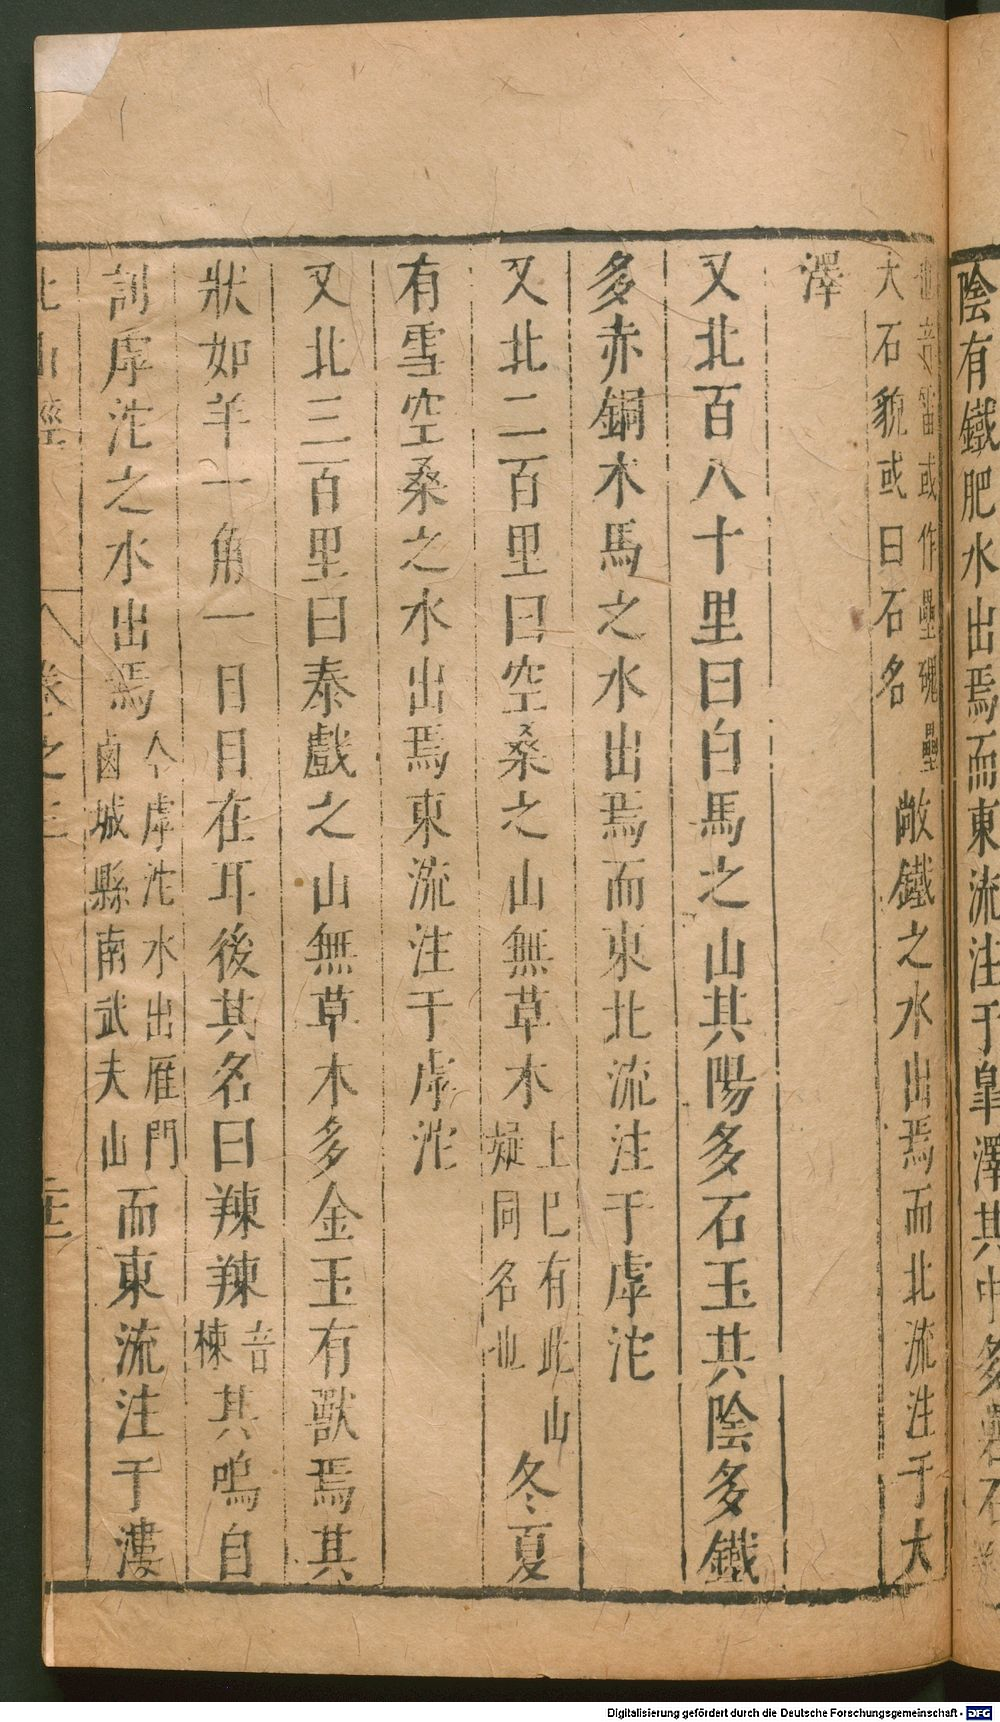 陰有鐵肥水出焉而東流注于皐澤其中多礨石
也音雷或作壘磈壘
大石貌或曰石名
敞鐵之水出焉而北流注于大
澤
又北百八十里曰白馬之山其陽多石玉其陰多鐵
多赤銅木馬之水出焉而東北流注于虖沱
又北二百里曰空桑之山無草木
上已有此山
疑同名也
冬夏
有雪空桑之水出焉東流注于虖沱
又北三百里曰泰戲之山無草木多金玉有獸焉其
狀如羊一角一目目在耳後其名曰䍶䍶
音
楝
其鳴自
訓虖沱之水出焉
今虖沱水出雁門
鹵城縣南武夫山
而東流注于漊
北山經
卷之三
Digitalisierung gefördert durch die Deutsche Forschungsgemeinschaft - DFG